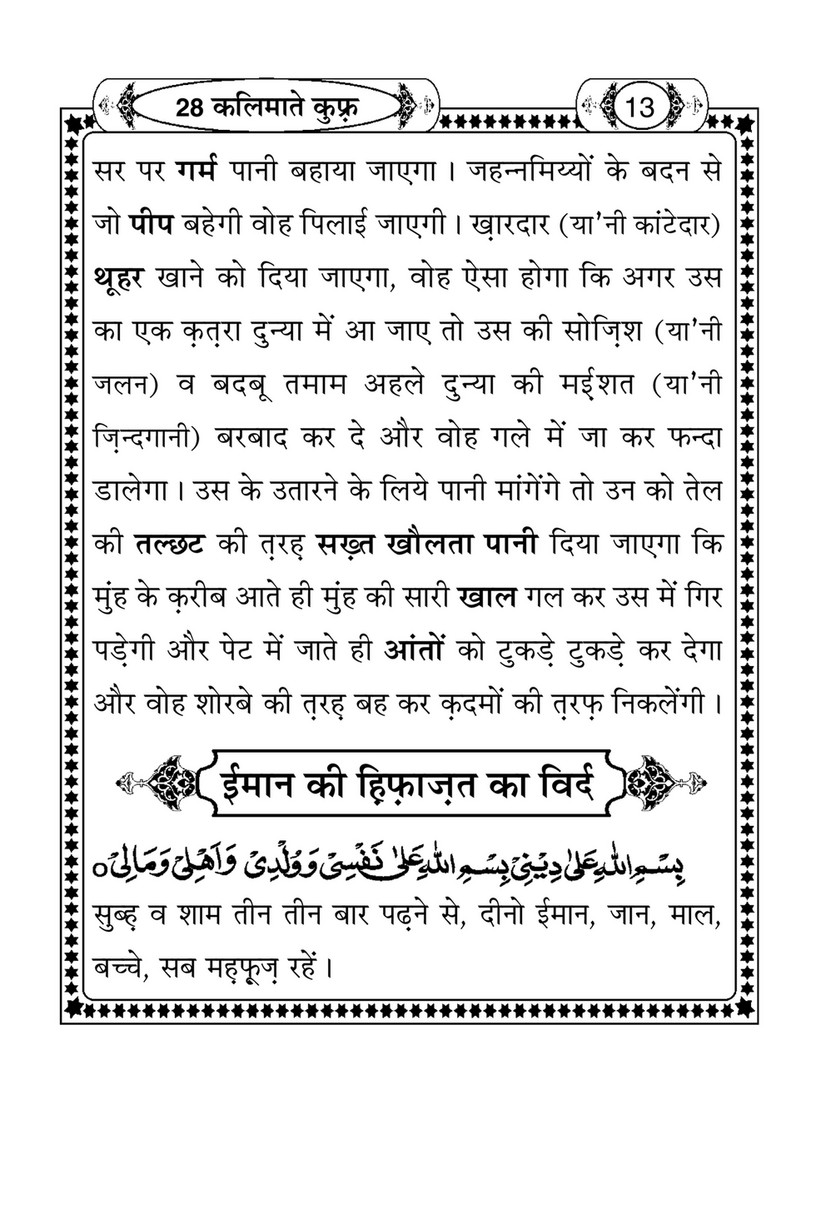 28 कलिमाते कुफ़्र
13
सर पर गर्म पानी बहाया जाएगा । जहन्नमिय्यों के बदन से
जो पीप बहेगी वोह पिलाई जाएगी । ख़ारदार (या'नी कांटेदार)
थूहर खाने को दिया जाएगा, वोह ऐसा होगा कि अगर उस
का एक क़त़रा दुन्या में आ जाए तो उस की सोज़िश (या'नी
जलन) व बदबू तमाम अहले दुन्या की मई़शत (या'नी
ज़िन्दगानी) बरबाद कर दे और वोह गले में जा कर फन्दा
डालेगा । उस के उतारने के लिये पानी मांगेंगे तो उन को तेल
की तल्छट की त़रह़ सख़्त खौलता पानी दिया जाएगा कि
मुंह के क़रीब आते ही मुंह की सारी खाल गल कर उस में गिर
पड़ेगी और पेट में जाते ही आंतों को टुकड़े टुकड़े कर देगा
और वोह शोरबे की त़रह़ बह कर क़दमों की त़रफ़ निकलेंगी ।
ईमान की ह़िफ़ाज़त का विर्द
بِسْمِ اللّٰهِ عَلٰى دِيْنِيْ بِسْمِ اللّٰهِ عَلٰى نَفْسِيْ وَوُلْدِيْ وَاَهْلِيْ وَمَالِيْ ο
सुब्ह़ व शाम तीन तीन बार पढ़ने से, दीनो ईमान, जान, माल,
बच्चे, सब मह़फ़ूज़ रहें ।